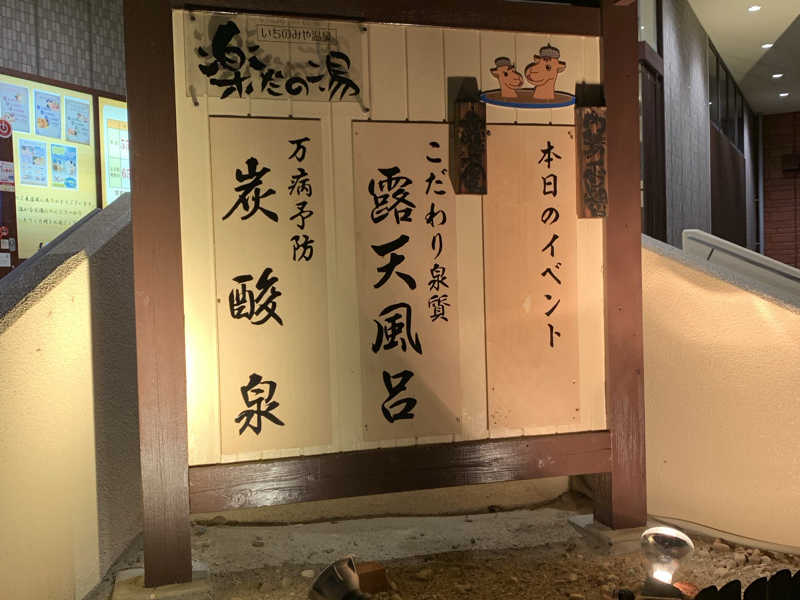 いちのみや温泉
楽だの湯
本日のイベント
こだわり泉質
露天風呂
万病予防
炭酸泉